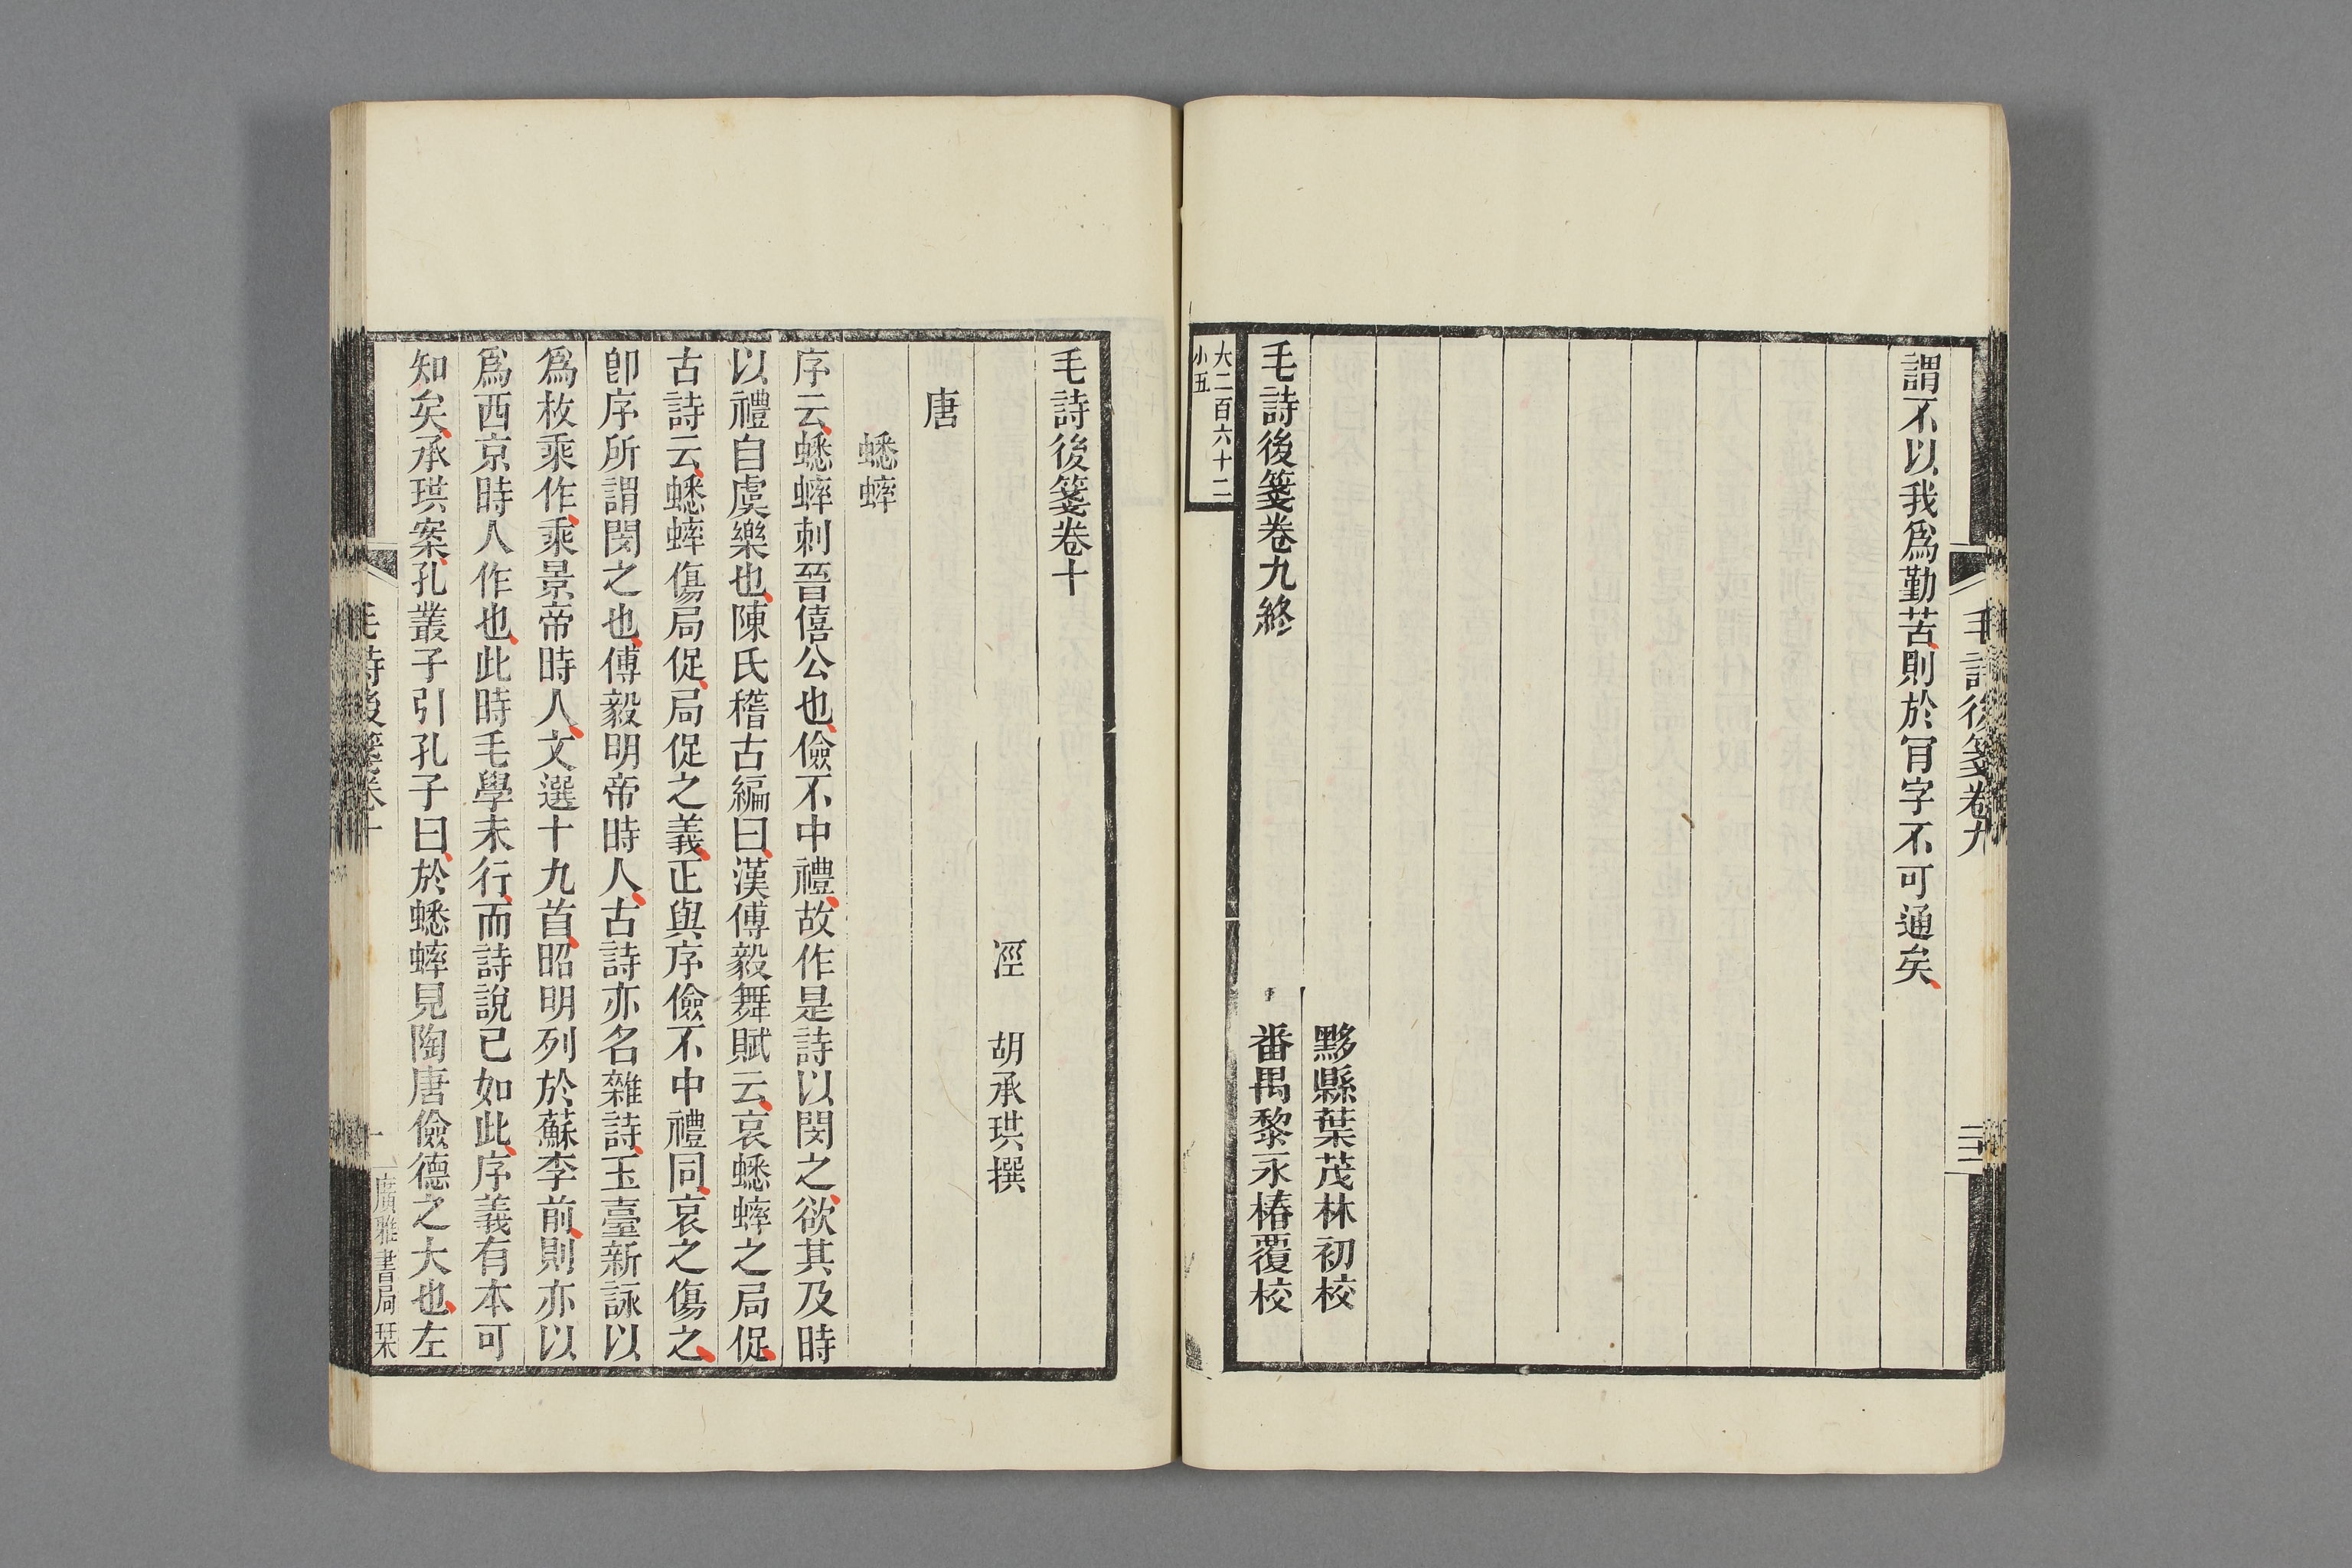 毛詩後箋卷九
三十一
謂不以我爲勤苦則於肎字不可通矣
黟縣葉茂林初校
毛詩後箋卷九終
番禺黎永椿覆校
大二百六十二
小五
毛詩後箋卷十
涇 胡承珙撰
唐
蟋蟀
序云蟋蟀刺晉僖公也儉不中禮故作是詩以閔之欲其及時
以禮自虞樂也陳氏稽古編曰漢傅毅舞賦云哀蟋蟀之局促
古詩云蟋蟀傷局促局促之義正與序儉不中禮同哀之傷之
卽序所謂閔之也傅毅明帝時人古詩亦名雜詩玉臺新詠以
爲枚乘作乘景帝時人文選十九首昭明列於蘇李前則亦以
爲西京時人作也此時毛學未行而詩說已如此序義有本可
知矣承珙案孔叢子引孔子曰於蟋蟀見陶唐儉德之大也左
毛詩後箋卷十
一
廣雅書局栞